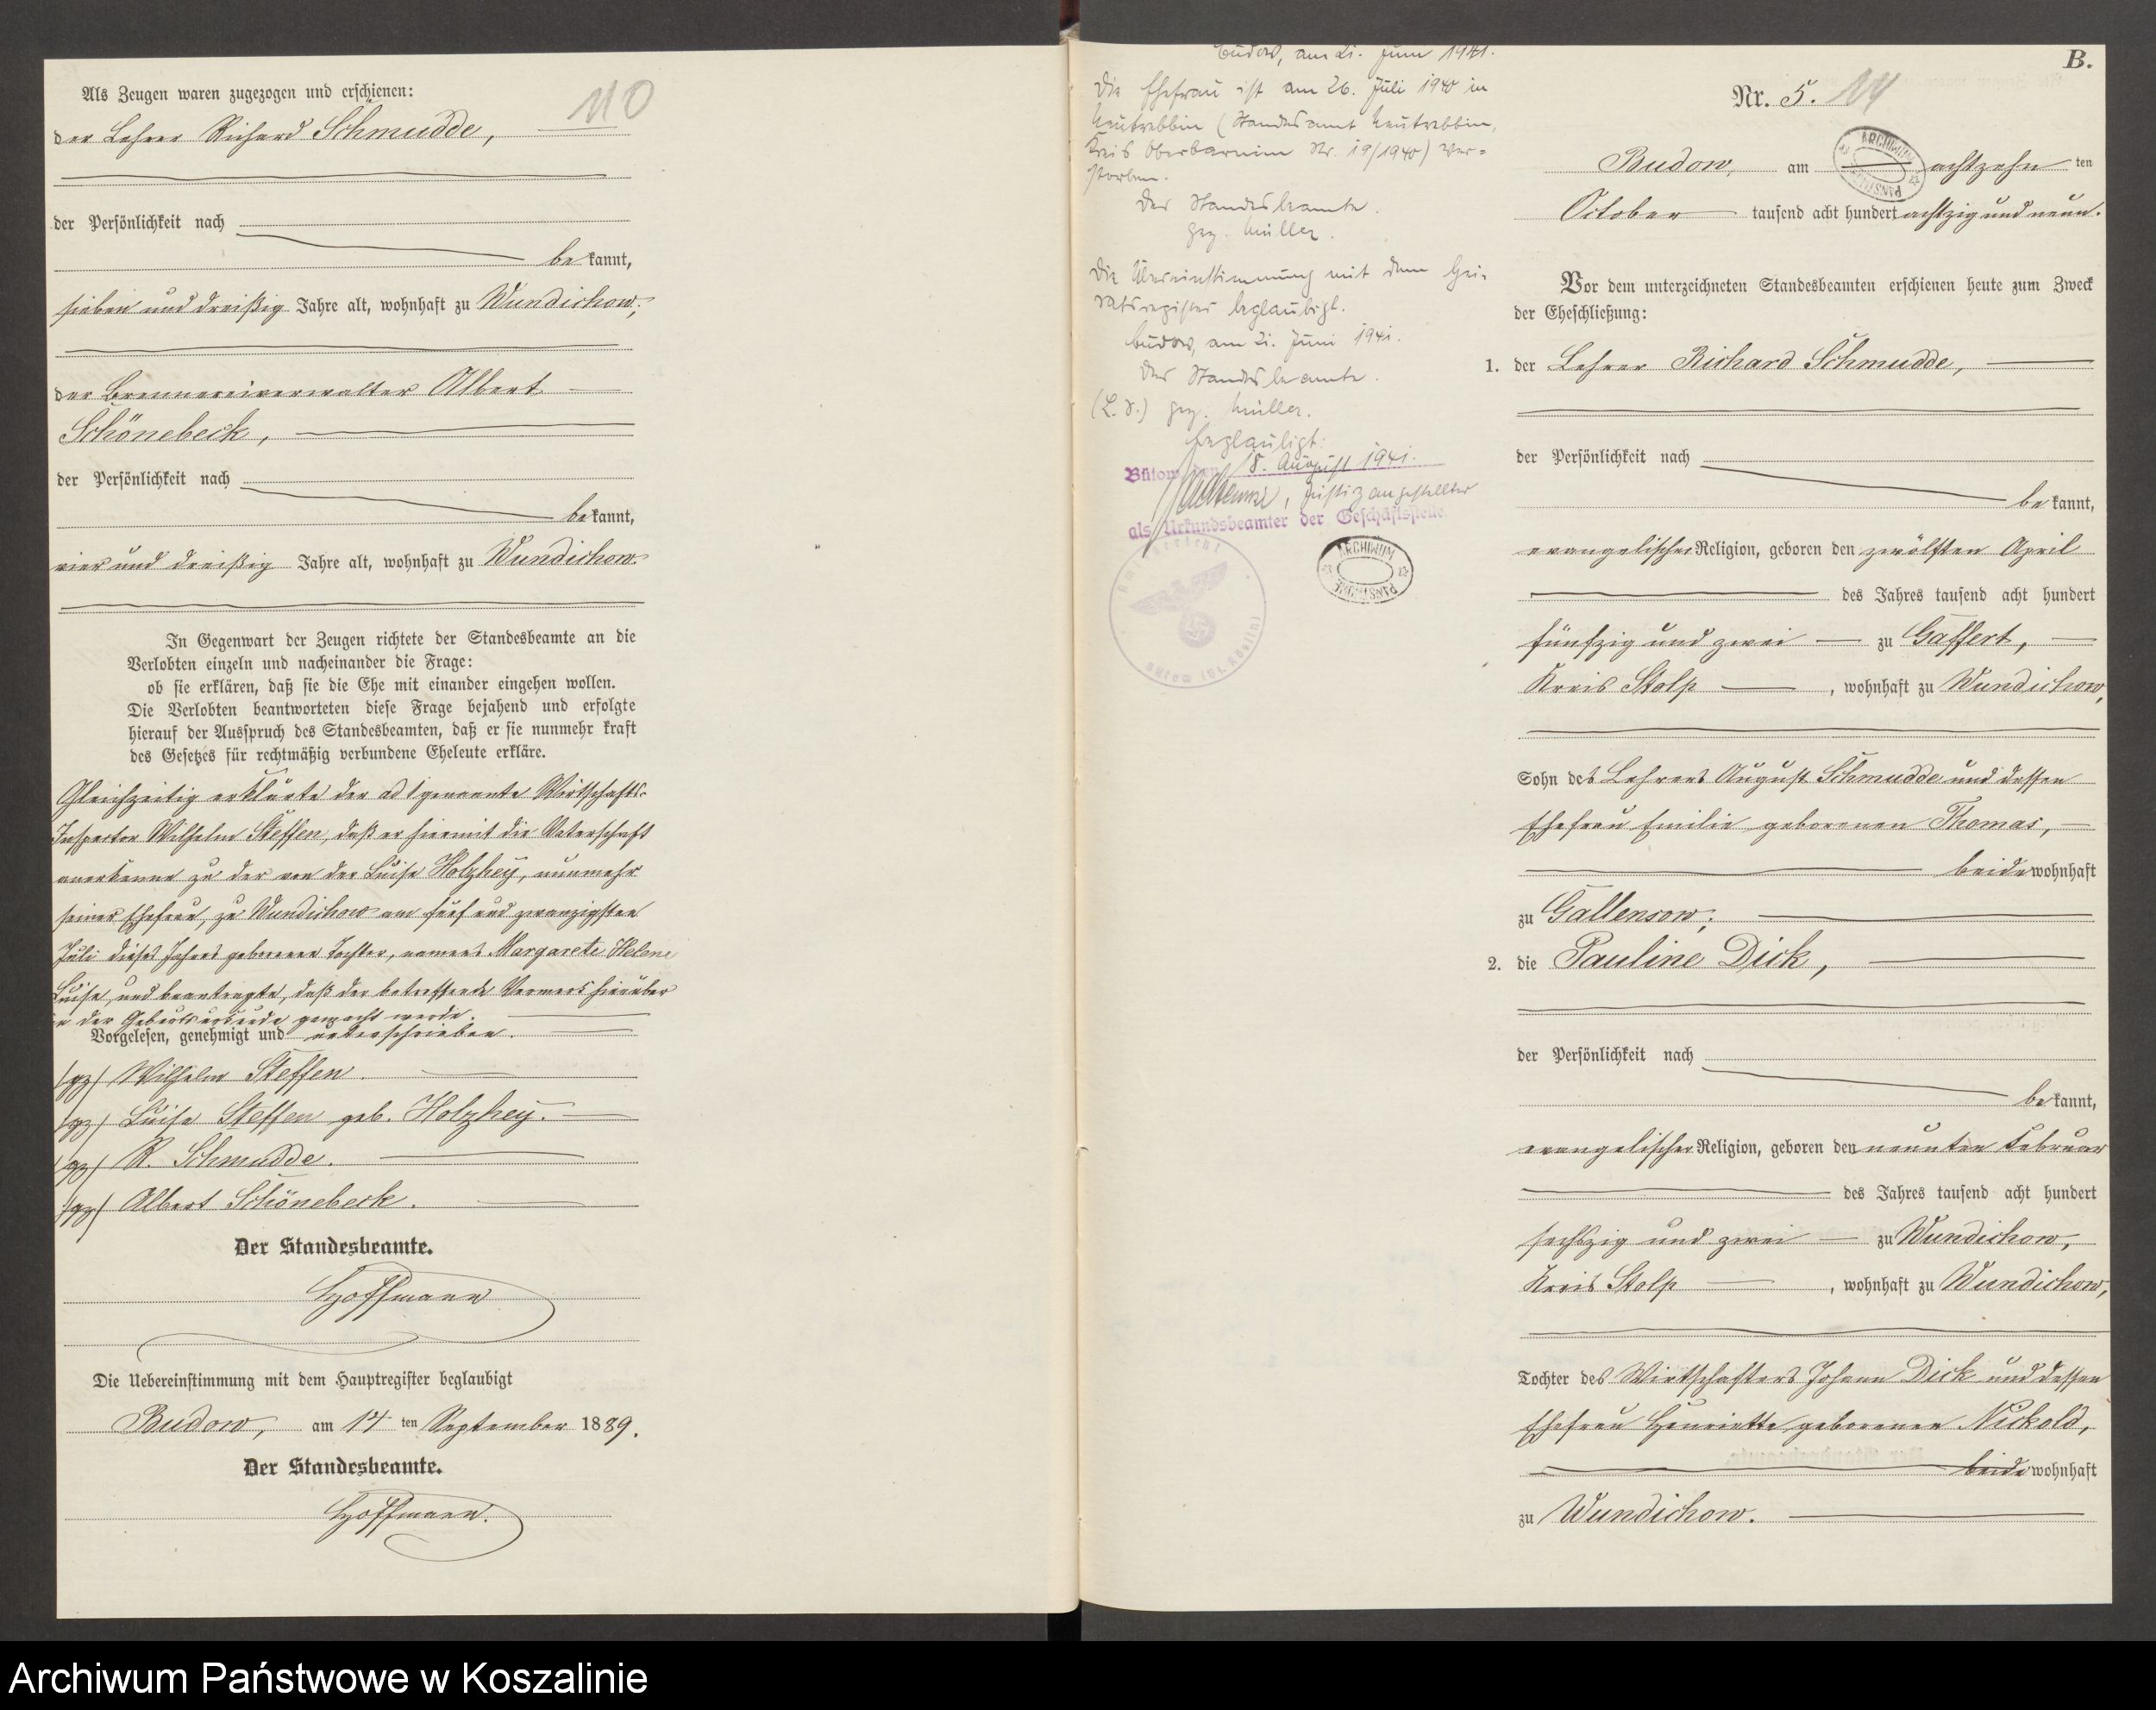 Als Zeugen waren zugezogen und erschienen:
110
der Lehrer Richard Schmudde,
der Persönlichkeit nach
bekannt,
sieben und dreißig Jahre alt, wohnhaft zu Wundichow;
der Brennereiverwalter Albert
Schönebeck,
der Persönlichkeit nach
bekannt,
vier und dreißig Jahre alt, wohnhaft zu Wundichow.
In Gegenwart der Zeugen richtete der Standesbeamte an die
Verlobten einzeln und nacheinander die Frage:
ob sie erklären, daß sie die Ehe mit einander eingehen wollen.
Die Verlobten beantworteten diese Frage bejahend und erfolgte
hierauf der Ausspruch des Standesbeamten, daß er sie nunmehr kraft
des Gesetzes für rechtmäßig verbundene Eheleute erkläre.
Gleichzeitig erklärte der ad 1 genannte Wirtschafts-
Inspector Wilhelm Steffen, daß er hiermit die Vaterschaft
anerkenne zu der von der Luise Holzhey, nunmehr
seiner Ehefrau, zu Wundichow am fünf und zwanzigsten
Juli dieses Jahres geborenen Tochter, namens Margarete Helene
Luise, und beantragte, daß der betreffende Vermerk hierüber
in der Geburtsurkunde gemacht werde.
Vorgelesen, genehmigt und unterschrieben.
(gz) Wilhelm Steffen.
(gz) Luise Steffen geb. Holzhey.
(gz) R. Schmudde.
(gz) Albert Schönebeck.
Der Standesbeamte.
Hoffmann
Die Uebereinstimmung mit dem Hauptregister beglaubigt
Budow, am 14 ten September 1889.
Der Standesbeamte.
Hoffmann.
Budow, am 21. Juni 1941.
Die Ehefrau ist am 26. Juli 1940 in
Neutrebbin (Standesamt Neutrebbin,
Kreis Oberbarnim Nr. 19/1940) ver=
storben.
Der Standesbeamte.
gez. Müller.
Die Übereinstimmung mit dem Hei-
ratsregister beglaubigt.
Budow, am 21. Juni 1941.
Der Standesbeamte.
(L.S.) gez. Müller.
Beglaubigt:
Bütow, den 8. August 1941.
Justizangestellter
als Urkundsbeamter der Geschäftsstelle.
Amtsgericht
Bütow (Bz. Köslin)
ARCHIWUM
PAŃSTWOWE
B.
Nr. 5. 14
ARCHIWUM
PAŃSTWOWE
Budow, am achtzehn ten
October tausend acht hundert achtzig und neun.
Vor dem unterzeichneten Standesbeamten erschienen heute zum Zweck
der Eheschließung:
1. der Lehrer Richard Schmudde,
der Persönlichkeit nach
bekannt,
evangelischer Religion, geboren den zwölften April
des Jahres tausend acht hundert
fünfzig und zwei zu Gaffert,
Kreis Stolp, wohnhaft zu Wundichow,
Sohn des Lehrers August Schmudde und dessen
Ehefrau Emilie geborenen Thomas,
beide wohnhaft
zu Gallensow;
2. die Pauline Dick,
der Persönlichkeit nach
bekannt,
evangelischer Religion, geboren den neunten Februar
des Jahres tausend acht hundert
sechszig und zwei zu Wundichow,
Kreis Stolp, wohnhaft zu Wundichow,
Tochter des Wirtschafters Johann Dick und dessen
Ehefrau Henriette geborenen Nickold,
beide wohnhaft
zu Wundichow.
Archiwum Państwowe w Koszalinie